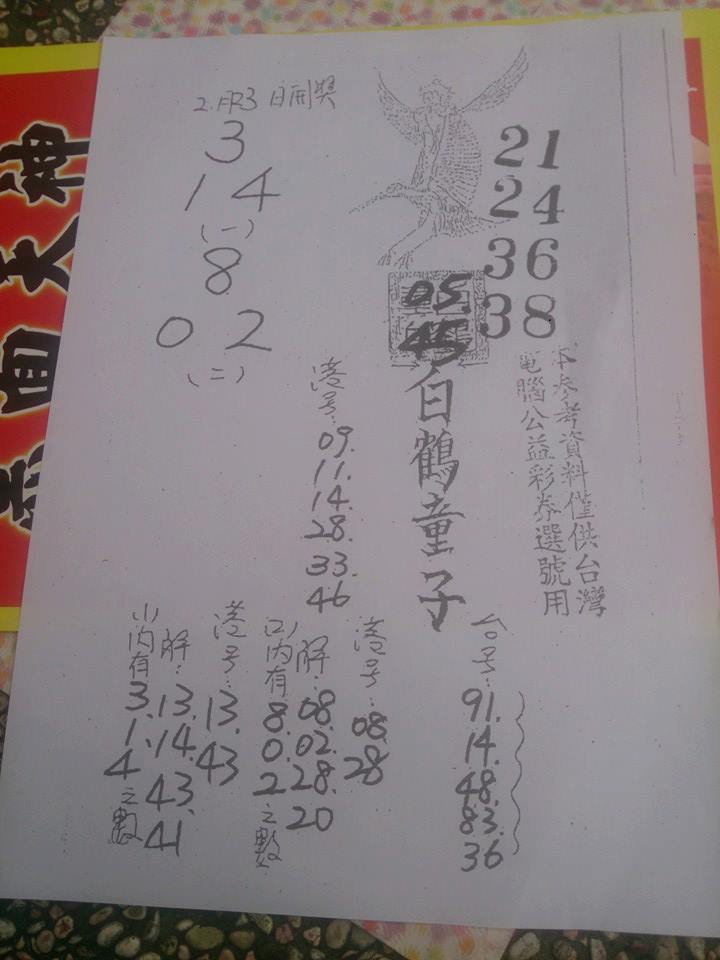 日開獎
3
14
(一)
8
02
(二)
21
24
36
38
05.
45
白鶴童子
本參考資料僅供台灣
電腦公益彩券選號用
港号:
09.
11.
14.
28.
33.
46
台号:
91.
14.
48.
83.
36
港号:
08.
28
解:
08.
02.
28.
20
(二)內有
8.
0.
2
之數
港号:
13.
43
解:
13.
14.
43.
41
(一)內有
3.
1.
4
之數
面天神